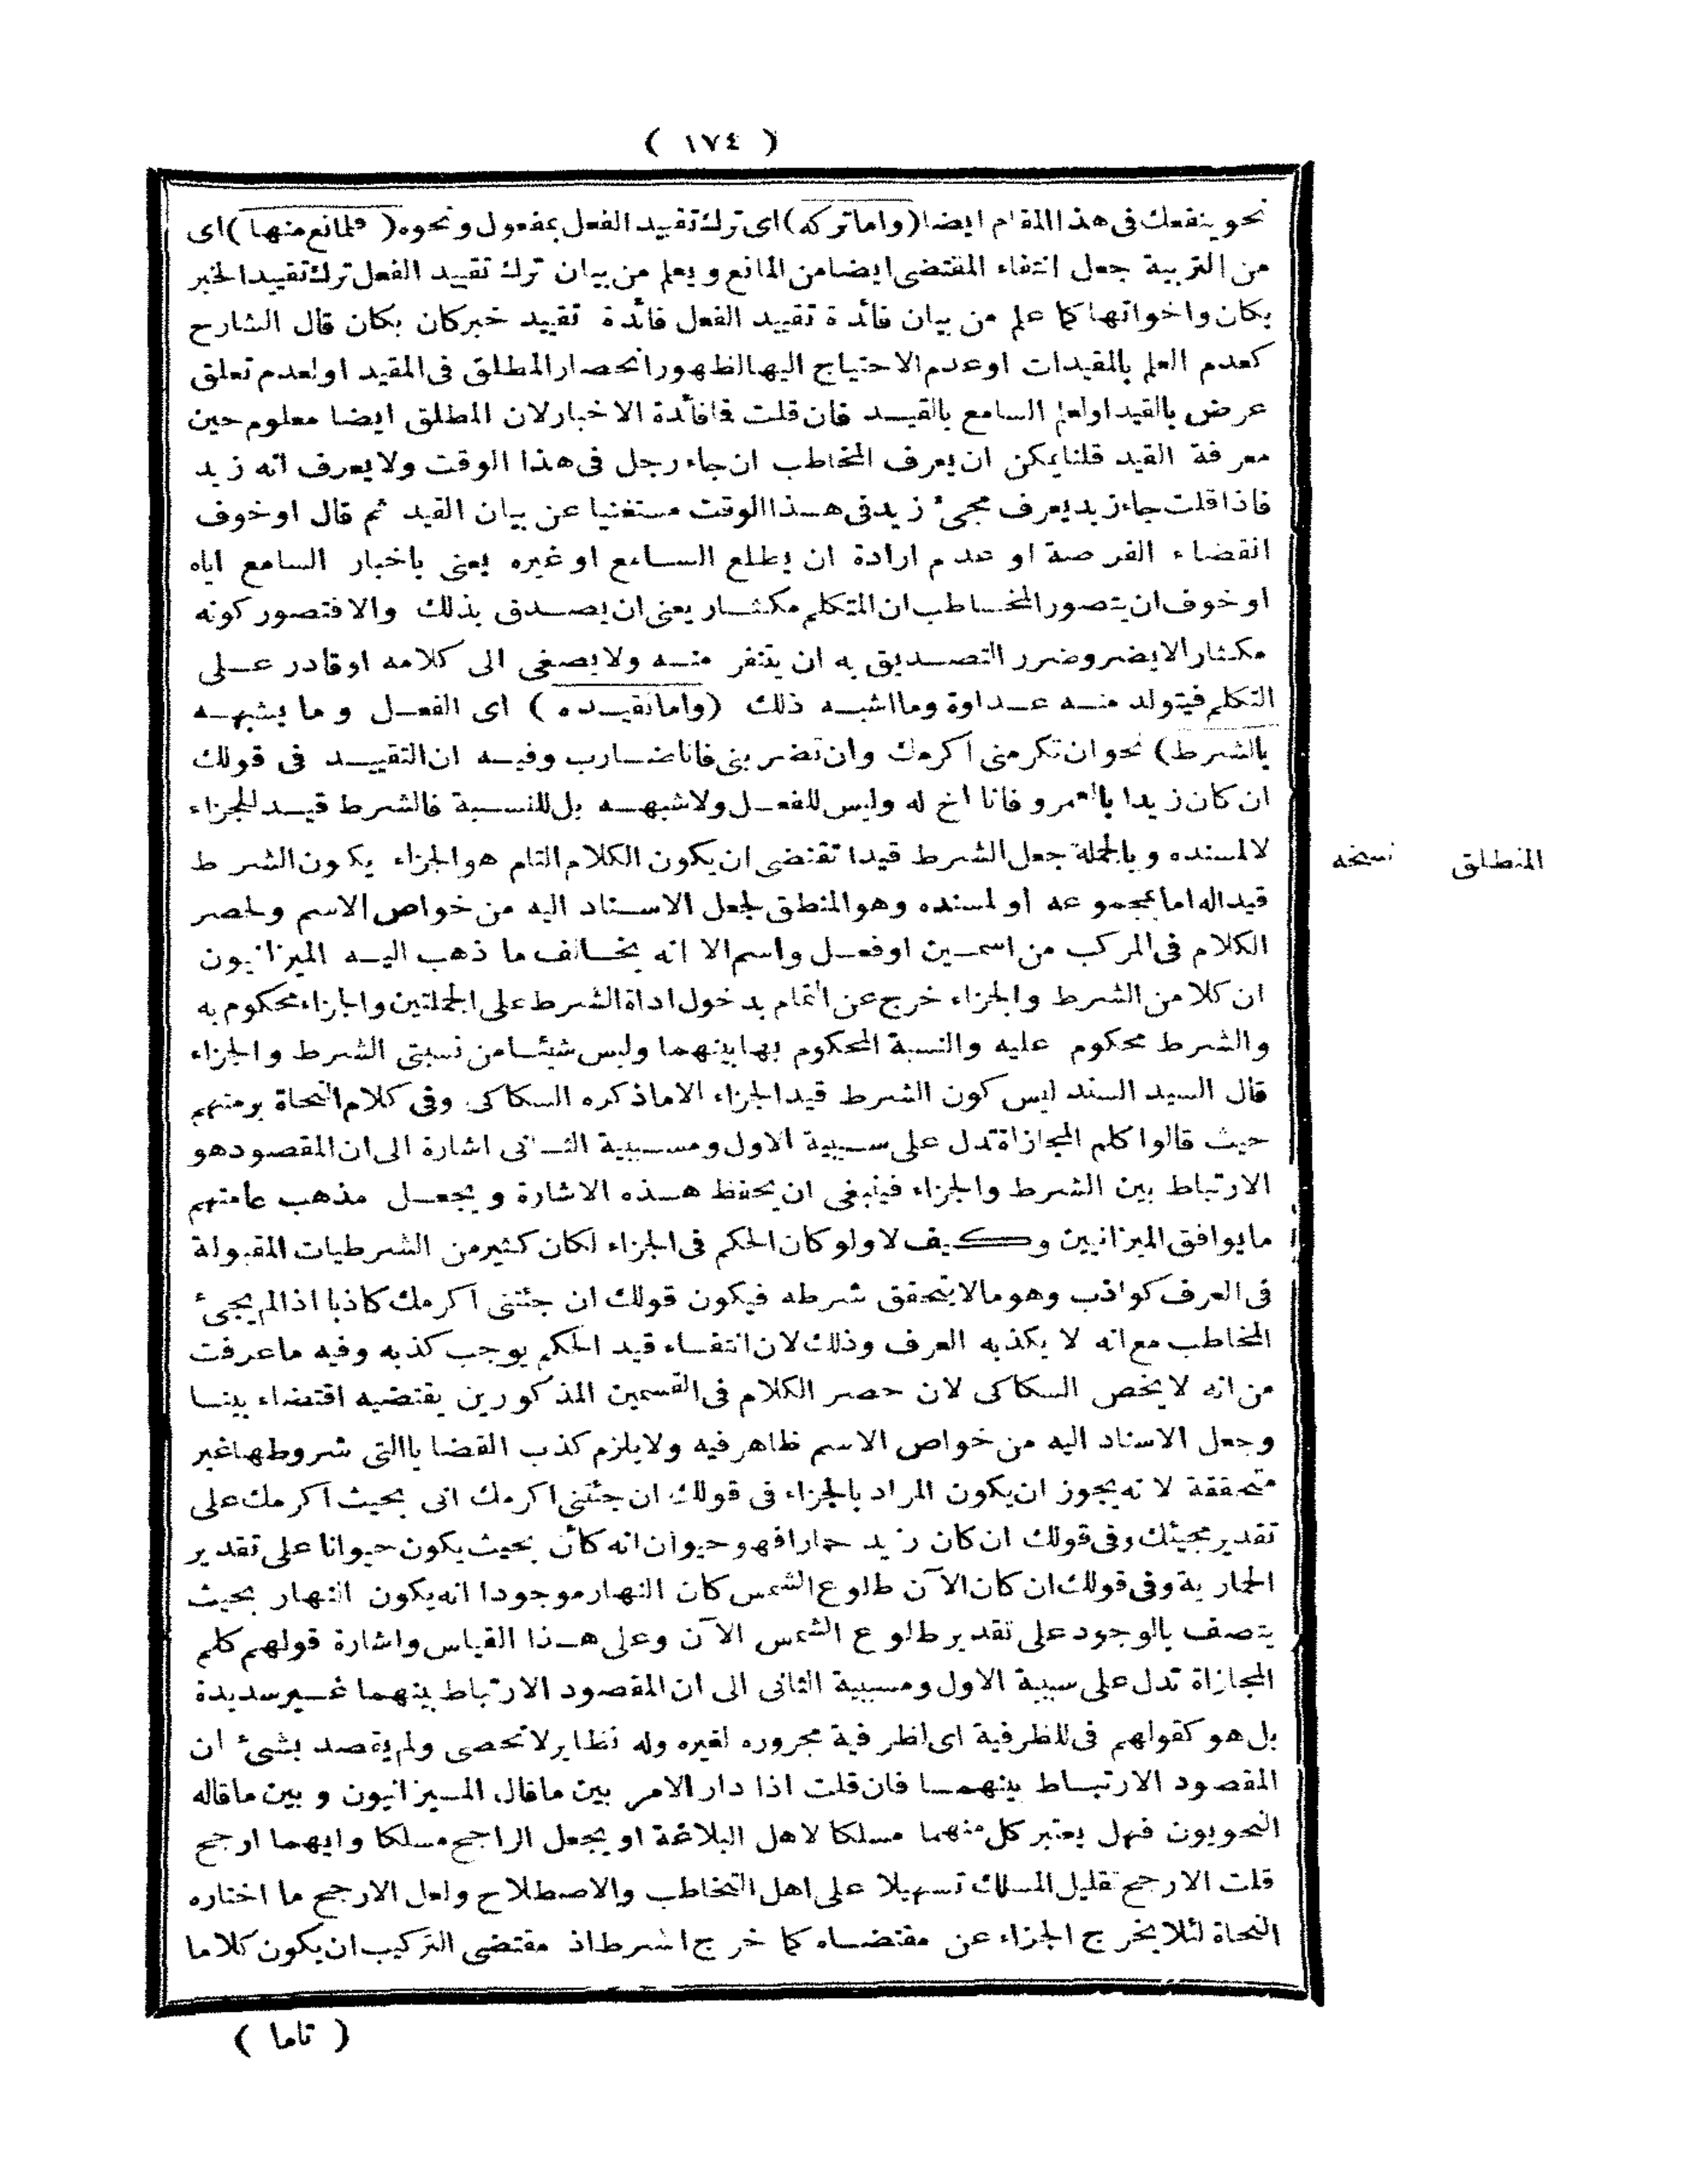 ( ١٧٤ )
نحو ينفعك فى هذا المقام ايضا (واما تركه) اى ترك تقييد الفعل بمفعول ونحوه (فلمانع منها) اى
من التربية جعل انتفاء المقتضى ايضا من المانع ويعلم من بيان ترك تقييد الفعل ترك تقييد الخبر
بكان واخواتها كما علم من بيان فائدة تقييد الفعل فائدة تقييد خبر كان بكان قال الشارح
كعدم العلم بالمقيدات او عدم الاحتياج اليها لظهور انحصار المطلق فى المقيد او لعدم تعلق
غرض بالقيد او لعلم السامع بالقيد فان قلت فما فائدة الاخبار لان المطلق ايضا معلوم حين
معرفة القيد قلنا يمكن ان يعرف المخاطب ان جاء رجل فى هذا الوقت ولا يعرف انه زيد
فاذا قلت جاء زيد يعرف مجئ زيد فى هذا الوقت مستغنيا عن بيان القيد ثم قال او خوف
انقضاء الفرصة او عدم ارادة ان يطلع السامع او غيره يعنى باخبار السامع اياه
او خوف ان يتصور المخاطب ان المتكلم مكثار يعنى ان يصدق بذلك والا فتصور كونه
مكثارا لا يضر وضرر التصديق به ان يتنفر منه ولا يصغى الى كلامه او قادر على
التكلم فيتولد منه عداوة وما اشبه ذلك (واما تقييده) اى الفعل وما يشبهه
بالشرط) نحو ان تكرمنى اكرمك وان تضربنى فانا ضارب وفيه ان التقييد فى قولك
ان كان زيدا با لعمرو فانا اخ له وليس للفعل ولا شبهه بل للنسبة فالشرط قيد للجزاء
لا لمسنده وبالجملة جعل الشرط قيدا تقتضى ان يكون الكلام التام هو الجزاء يكون الشرط
المنطلق نسخه
قيدا له اما بمجموعه او لمسنده وهو المنطق لجعل الاسناد اليه من خواص الاسم ولحصر
الكلام فى المركب من اسمين او فعل واسم الا انه يخالف ما ذهب اليه الميزانيون
ان كلا من الشرط والجزاء خرج عن التمام بدخول اداة الشرط على الجملتين والجزاء محكوم به
والشرط محكوم عليه والنسبة المحكوم بها بينهما وليس شيئا من نسبتى الشرط والجزاء
قال السيد السند ليس كون الشرط قيد الجزاء الا ما ذكره السكاكى وفى كلام النحاة برمتهم
حيث قالوا كلم المجازاة تدل على سببية الاول ومسببية الثانى اشارة الى ان المقصود هو
الارتباط بين الشرط والجزاء فينبغى ان يحفظ هذه الاشارة ويجعل مذهب عامتهم
ما يوافق الميزانيين وكيف لا ولو كان الحكم فى الجزاء لكان كثير من الشرطيات المقبولة
فى العرف كواذب وهو ما لا يتحقق شرطه فيكون قولك ان جئتنى اكرمك كاذبا اذا لم يجئ
المخاطب مع انه لا يكذبه العرف وذلك لان انتفاء قيد الحكم يوجب كذبه وفيه ما عرفت
من انه لا يخص السكاكى لان حصر الكلام فى القسمين المذكورين يقتضيه اقتضاء بينا
وجعل الاسناد اليه من خواص الاسم ظاهر فيه ولا يلزم كذب القضايا التى شروطها غير
متحققة لانه يجوز ان يكون المراد بالجزاء فى قولك ان جئتنى اكرمك انى بحيث اكرمك على
تقدير مجيئك وفى قولك ان كان زيد حمارا فهو حيوان انه كائن بحيث يكون حيوانا على تقدير
الحمارية وفى قولك ان كان الآن طلوع الشمس كان النهار موجودا انه يكون النهار بحيث
يتصف بالوجود على تقدير طلوع الشمس الآن وعلى هذا القياس واشارة قولهم كلم
المجازاة تدل على سببية الاول ومسببية الثانى الى ان المقصود الارتباط بينهما غير سديدة
بل هو كقولهم فى للظرفية اى لظرفية مجروره لغيره وله نظاير لا تحصى ولم يقصد بشئ ان
المقصود الارتباط بينهما فان قلت اذا دار الامر بين ما قال الميزانيون وبين ما قاله
النحويون فهل يعتبر كل منهما مسلكا لاهل البلاغة او يجعل الراجح مسلكا وايهما ارجح
قلت الارجح تقليل المسلك تسهيلا على اهل التخاطب والاصطلاح ولعل الارجح ما اختاره
النحاة لئلا يخرج الجزاء عن مقتضاه كما خرج الشرط اذ مقتضى التركيب ان يكون كلاما
( تاما )